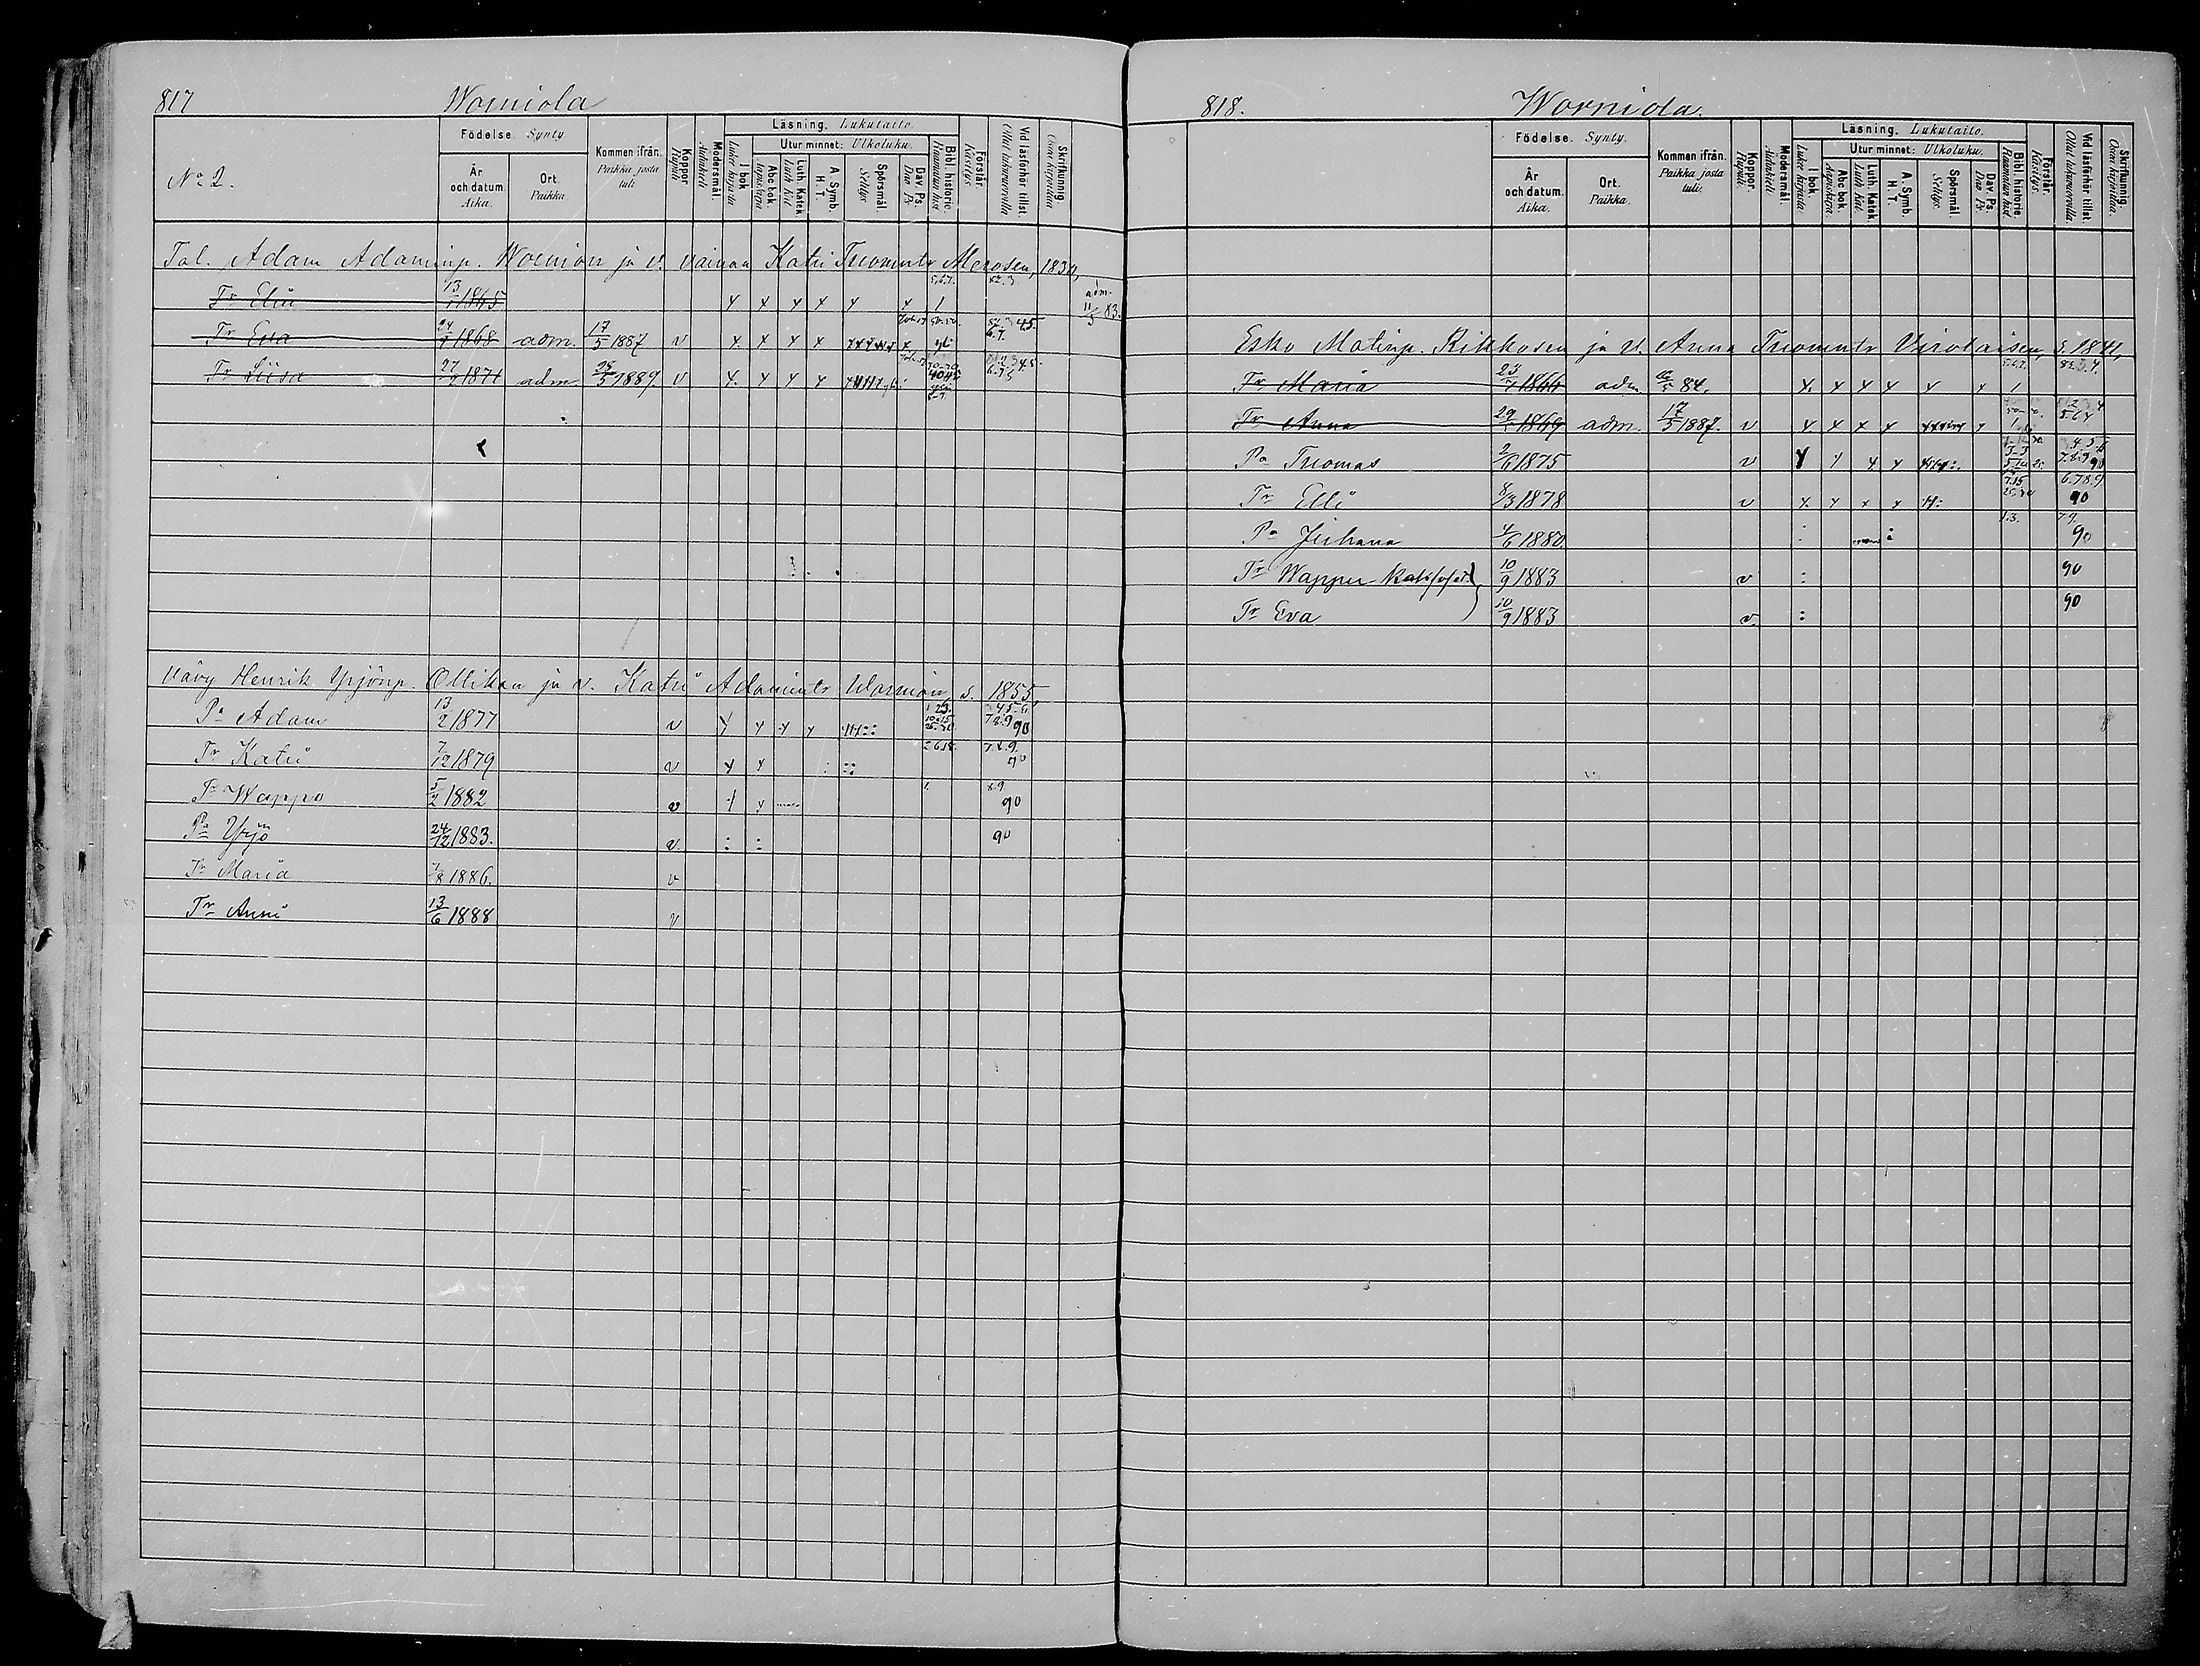 817 Worniola
Födelse. Synty
Läsning. Lukutaito.
Utur minnet: Ulkoluku.
År och datum. Aika.
Ort Paikka
Kommen ifrån. Paikka josta tuli
Koppor. Rupuli
Modersmål. Äidinkieli
I bok. Lukee kirjasta
Abc bok. Aapiskirja
Luth. Katek. Luth. Kat.
A. Symb. H. T.
Spörsmål. Selitys
Dav. Ps. Dav. Ps.
Bibl. historie. Raamatun hist.
Förstår. Käsitys.
Vid läsförhör tillst. Ollut lukuvuoroilla
Skrifkunnig. Osaa kirjoittaa
No 2.
Tal. Adam Adaminp. Wornion ja v. vaimon Katri Tuomntr Merosen, 1830,
Tr Elli 13 1865 x x x x x x 1 adm. 11/5 83.
Tr Eva 24 1868 adm. 17/5 1887 v x x x x
Tr Liisa 27 1871 adm 25/5 1889 v x x x x
Vävy Henrik Yrjönp. Ollikan ja v. Katri Adamintr Wornion, s. 1855
Pa Adam 13/2 1877 v x x x x 90
Tr Katri 7/12 1879 v x x 7.8.9. 90
Tr Wappo 5/2 1882 v 8.9. 90
Pa Yrjö 24/12 1883. v : : 90
Tr Maria 7/8 1886. v
Tr Anni 13/6 1888 v
818. Worniola.
Födelse. Synty.
Läsning. Lukutaito.
Utur minnet: Ulkoluku.
År och datum. Aika.
Ort. Paikka.
Kommen ifrån. Paikka josta tuli.
Koppor. Rupuli.
Modersmål. Äidinkieli.
I bok. Lukee kirjasta.
Abc bok. Aapiskirja
Luth. Katek. Luth. Kat.
A. Symb. H. T.
Spörsmål. Selitys.
Dav. Ps. Dav. Ps.
Bibl. historie. Raamatun hist.
Förstår. Käsitys.
Vid läsförhör tillst. Ollut lukuvuoroilla
Skrifkunnig. Osaa kirjoittaa.
Esko Matinp. Rikkosen ja v. Anna Tuomntr Virolaisen, s. 1841,
Tr Maria 23 1866 adm 84. x x x x x x 1
Tr Anna 29 1869 adm. 17/5 1887. v x x x x
Pa Tuomas 2/6 1875 v x x x x 90
Tr Elli 8/3 1878 v x x x x 6.7.8.9 90
Pa Juhana 4/6 1880. 1.3. 7.9. 90
Tr Wappu 10/9 1883 v : 90
Tr Eva 10/9 1883 v. : 90